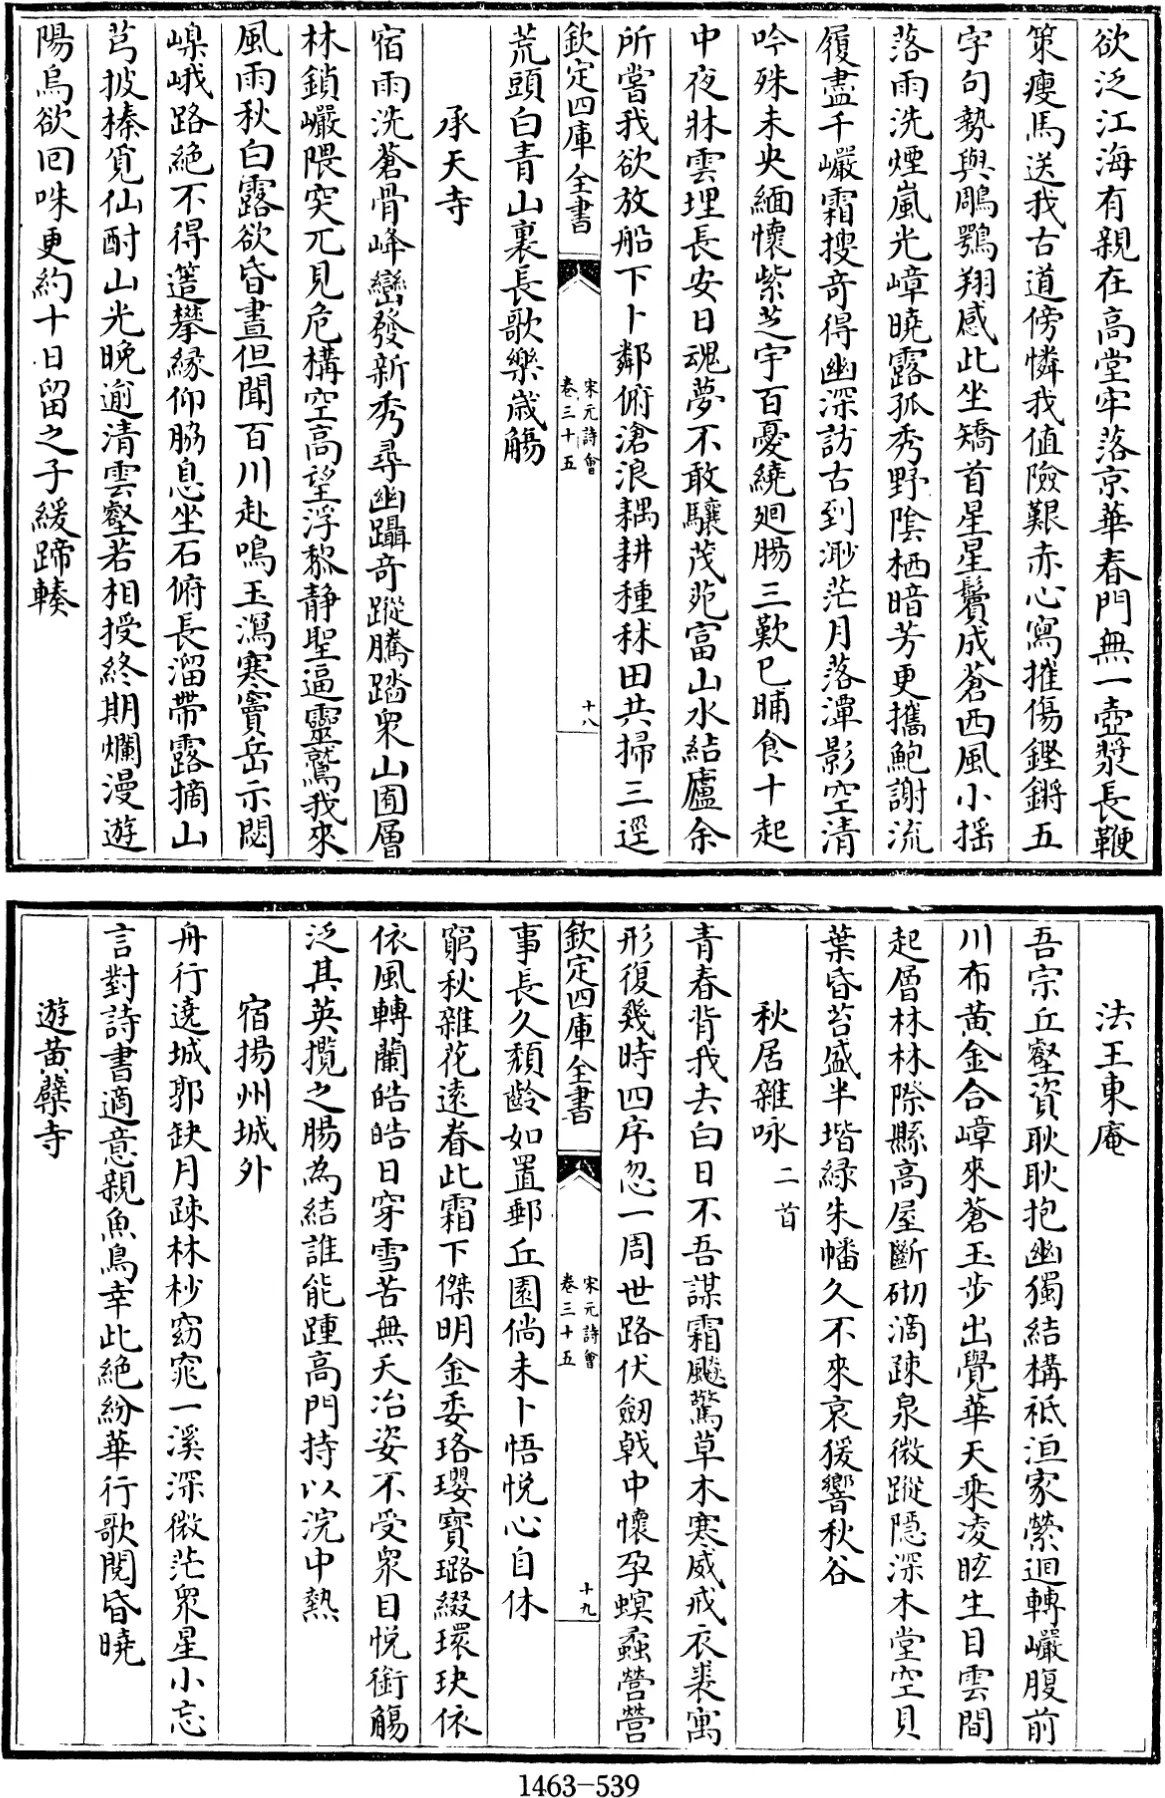 欲泛江海有親在高堂牢落京華春門無一壺漿長鞭
策瘦馬送我古道傍憐我值險艱赤心寫摧傷鏗鏘五
字句勢與鵰鶚翔感此坐矯首星星鬢成蒼西風小搖
落雨洗煙嵐光嶂曉露孤秀野陰栖暗芳更攜鮑謝流
履盡千巖霜搜奇得幽深訪古到渺茫月落潭影空清
吟殊未央緬懷紫芝宇百憂繞廻腸三歎已晡食十起
中夜牀雲埋長安日魂夢不敢驤茂苑富山水結廬余
所嘗我欲放船下卜鄰俯滄浪耦耕種秫田共掃三逕
欽定四庫全書
宋元詩會
卷三十五
十八
荒頭白青山裏長歌樂歲觴
承天寺
宿雨洗蒼骨峰巒發新秀尋幽躡奇蹤騰踏衆山囿層
林鎖巖隈突兀見危構空高望浮黎靜聖逼靈鷲我來
風雨秋白露欲昏晝但聞百川赴鳴玉瀉寒竇岳示閟
嵲峨路絶不得簉攀緣仰脇息坐石俯長溜帶露摘山
芎披榛覓仙酎山光晚逾清雲壑若相授終期爛漫遊
陽烏欲囘咮更約十日留之子緩蹄輳
法王東庵
吾宗丘壑資耿耿抱幽獨結構祇洹家縈迴轉巖腹前
川布黄金合嶂來蒼玉步出覺華天乘凌眩生目雲間
起層林林際縣高屋斷砌滴疎泉微蹤隱深木堂空貝
葉昏苔盛半堦緑朱幡久不來哀猨響秋谷
秋居雜咏二首
青春背我去白日不吾謀霜飈驚草木寒威戒衣裘寓
形復幾時四序忽一周世路伏劒戟中懷孕螟蟊營營
欽定四庫全書
宋元詩會
卷三十五
十九
事長久頽齡如置郵丘園倘未卜悟悦心自休
窮秋雜花遠眷此霜下傑明金委珞瓔寶璐綴環玦依
依風轉蘭皓皓日穿雪苦無夭冶姿不受衆目悦銜觴
泛其英攬之腸為結誰能踵高門持以浣中熱
宿揚州城外
舟行遶城郭缺月疎林杪窈窕一溪深微茫衆星小忘
言對詩書適意親魚鳥幸此絶紛華行歌閲昏曉
遊黄蘗寺
1463-539